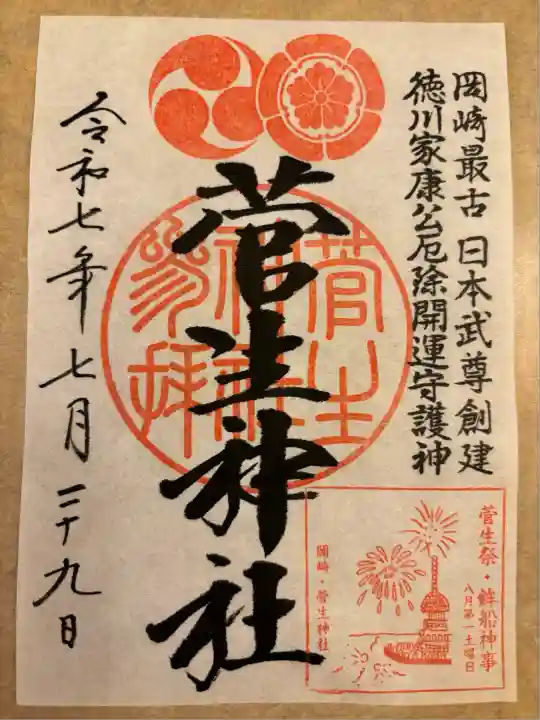 岡崎最古 日本武尊創建
徳川家康公厄除開運守護神
菅生神社
菅生神社参拝
令和七年七月二十九日
菅生祭・鉾船神事
八月第一土曜日
岡崎・菅生神社